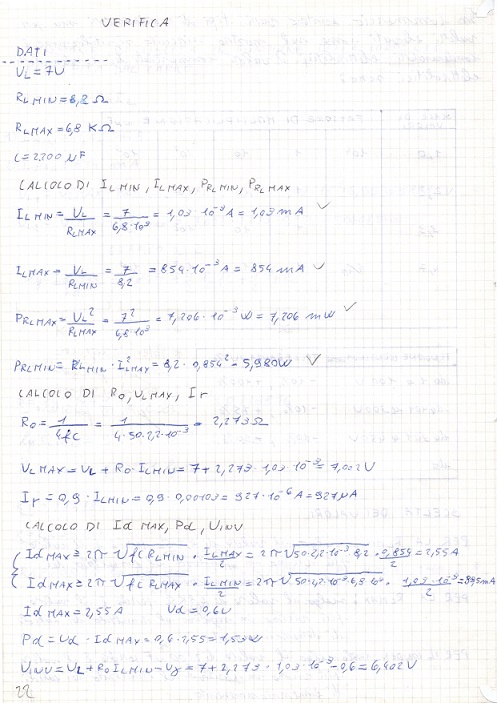 VERIFICA
DATI
VL = 7V
RL MIN = 8,2 Ω
RL MAX = 6,8 KΩ
C = 2200 µF
CALCOLO DI IL MIN, IL MAX, PRL MIN, PRL MAX
IL MIN = VL/RL MAX = 7/6,8·10³ = 1,03·10⁻³ A = 1,03 mA ✓
IL MAX = VL/RL MIN = 7/8,2 = 854·10⁻³ A = 854 mA ✓
PRL MAX = VL²/RL MAX = 7²/6,8·10³ = 7,206·10⁻³ W = 7,206 mW ✓
PRL MIN = RL MIN · I²L MAX = 8,2 · 0,854² = 5,980W ✓
CALCOLO DI RO, VL MAX, Ir
RO = 1/4fC = 1/4·50·2,2·10⁻³ = 2,273Ω
VL MAX = VL + RO · IL MIN = 7 + 2,273 · 1,03·10⁻³ = 7,002V
Ir = 0,9 · IL MIN = 0,9 · 0,00103 = 927·10⁻⁶ A = 927µA
CALCOLO DI Id MAX, Pd, VINV
Id MAX ≥ 2π · √fC RL MIN · IL MAX/2 = 2π √50·2,2·10⁻³·8,2 · 0,854/2 = 2,55 A
Id MAX ≥ 2π √fC RL MAX · IL MIN/2 = 2π √50·2,2·10⁻³·6,8·10³ · 1,03·10⁻³/2 =
Id MAX = 2,55 A Vd = 0,6V
Pd = Vd · Id MAX = 0,6 · 2,55 = 1,53W
VINV = VL + RO IL MIN - Vγ = 7 + 2,273 · 1,03·10⁻³ - 0,6 = 6,402V
22